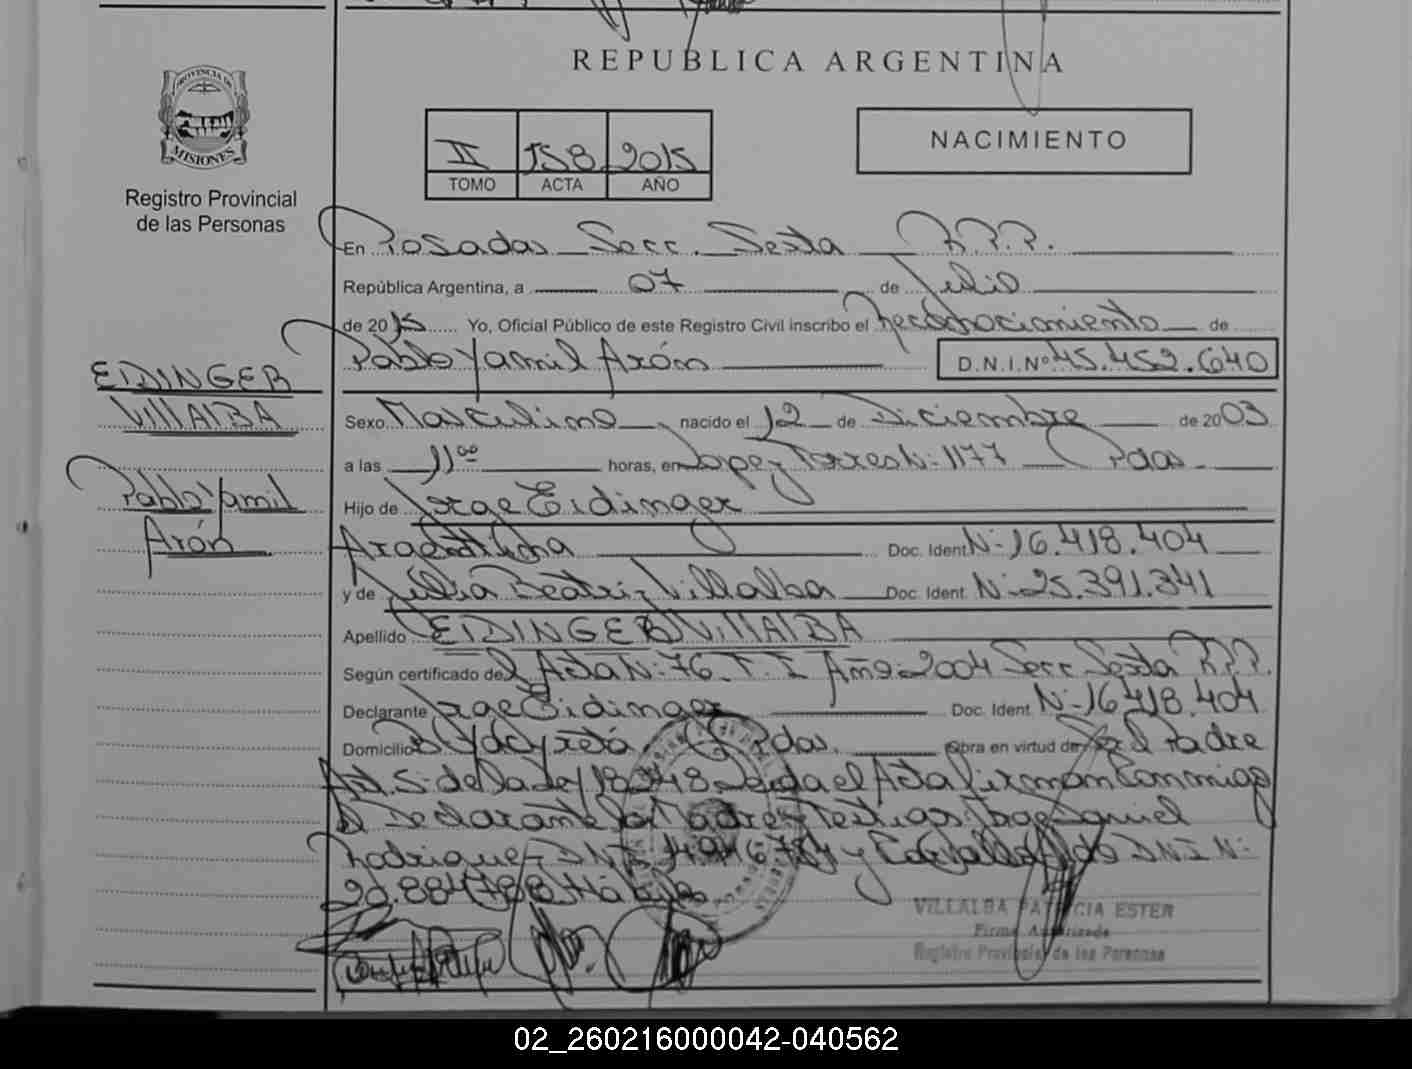 REPUBLICA ARGENTINA
PROVINCIA DE
MISIONES
Registro Provincial
de las Personas
II 158 2015
TOMO ACTA AÑO
NACIMIENTO
En Posadas Secc. Sexta R.P.P.
República Argentina, a 07 de Julio
de 2015 Yo, Oficial Público de este Registro Civil inscribo el Reconocimiento de
Pablo Yamil Arón D.N.I.Nº 45.452.640
EIDINGER
VillAlBA
Pablo Yamil
Arón
Sexo Masculino nacido el 12 de Diciembre de 2003
a las 11oo horas, en Lopez Torres N- 1177 Pdas
Hijo de Jorge Eidinger
Argentina Doc. Ident N- 16.418.404
y de Julia Beatriz Villalba Doc. Ident. N- 25.391.341
Apellido EIDINGER VillAlBA
Según certificado del Acta N- 76 T. I Año 2004 Secc Sexta R.P.P.
Declarante Jorge Eidinger Doc. Ident. N- 16.418.404
Domicilio Yacyretá Pdas. Obra en virtud de Ser el Padre
Art. 5- de la Ley 18248 Leida el Acta firman Conmigo
el Declarante la Madre y Testigos Jorge
Rodriguez DNI y DNI N-
Hábiles
VILLALBA PATRICIA ESTER
Firma Autorizada
Registro Provincial de las Personas
02_260216000042-040562